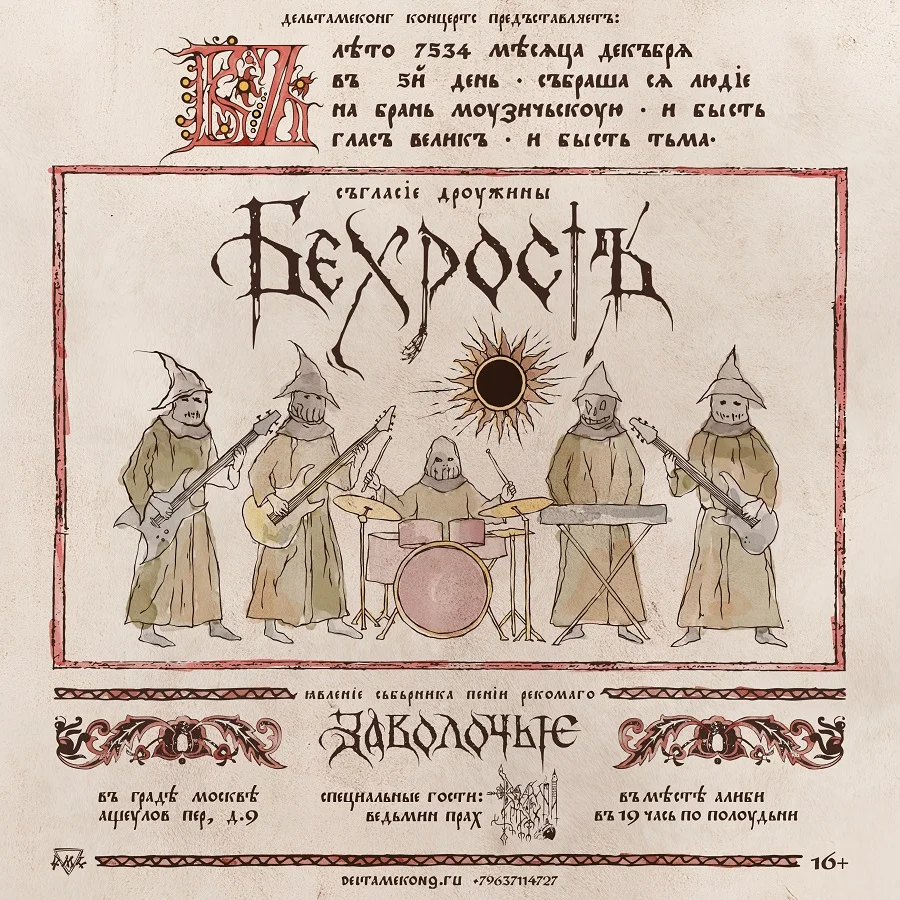 дельтамеконг концертс предъставляетъ:
ВЪ лѣто 7534 мѣсяца декъбря
въ 5й день · събраша ся людіе
на брань моузичьскоую · и бысть
гласъ великъ · и бысть тьма·
съгласіе дроужины
Бехрость
ꙗвленіе събърника пеніи рекомаго
Заволочье
въ градѣ москвѣ
ащеулов пер, д.9
специальные гости:
ведьмин прах
въ мѣстѣ алиби
въ 19 часъ по полоудьни
16+
deltamekong.ru +79637114727